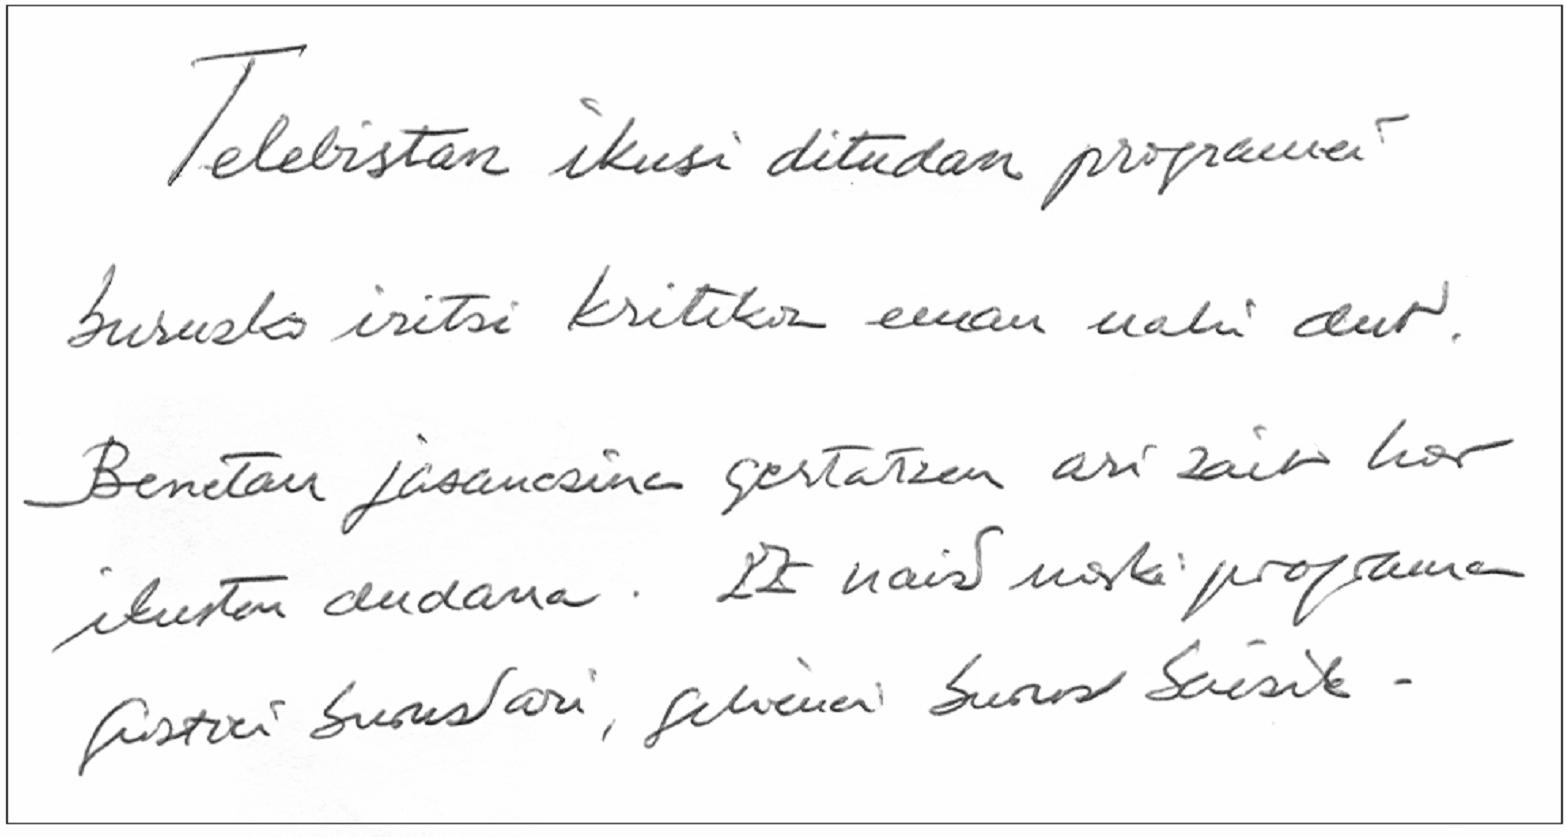 Telebistan ikusi ditudan programei
buruzko iritzi kritikoa eman nahi dut.
Benetan jasanezina gertatzen ari zait hor
ikusten dudana. Ez naiz noski programa
guztiei buruz ari, gehienei buruz baizik.